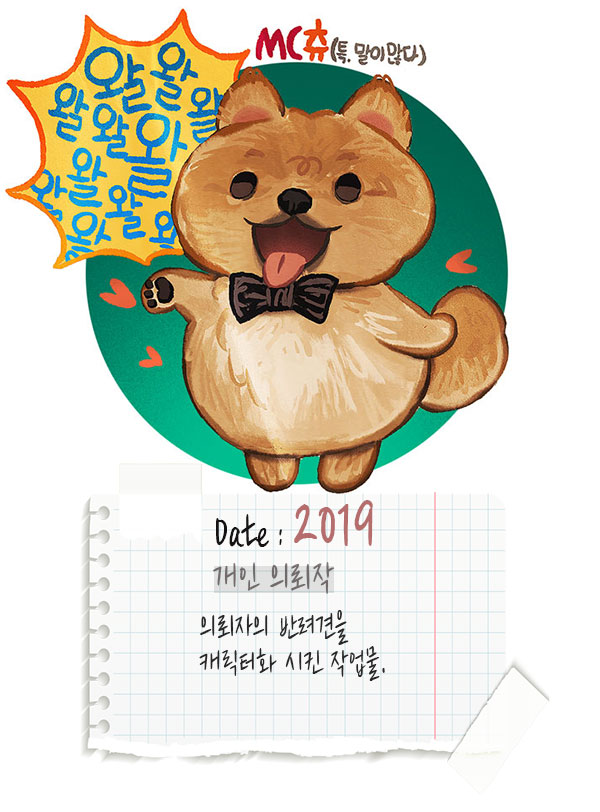 MC츄(특. 말이많다)
왈 왈
왈 왈 왈
왈
왈
왈 왈 왈
Date : 2019
개인 의뢰작
의뢰자의 반려견을
캐릭터화 시킨 작업물.